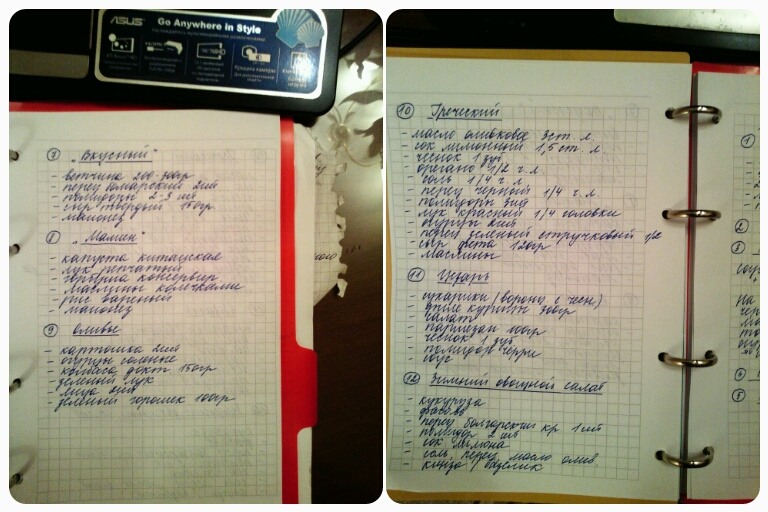 ASUS
Go Anywhere in Style
7 „Вкусный"
- ветчина 200-300гр
- перец болгарский 2шт
- помидоры 2-3 шт
- сыр твердый 150гр
- майонез
8 „Мамин"
- капуста китайская
- лук репчатый
- горбуша консервир
- маслины колечками
- рис вареный
- майонез
9 Оливье
- картошка 2шт
- огурцы соленые
- колбаса докт 150гр
- зеленый лук
- яйца
- зеленый горошек 100гр
10 Греческий
- масло оливковое 3ст. л.
- сок лимонный 1,5 ст. л.
- чеснок 1 зуб.
- орегано 1/2 ч. л.
- соль 1/4 ч. л
- перец черный 1/4 ч. л
- помидоры 3шт
- лук красный 1/4 головки
- огурцы 2шт
- перец зеленый стручковый 1/2
- сыр фета 120гр
- маслины
11 Цезарь
- сухарики (ворона с чесн)
- филе курин 300гр
- салат
- пармезан 100гр
- чеснок 1 зуб
- помидор черри
- соус
12 Зимний овощной салат
- кукуруза
- фасоль
- перец болгарский кр 1шт
- помидор 2 шт
- сок лимона
- соль, перец, масло олив
- кинза / базилик
1
2
3
4
5